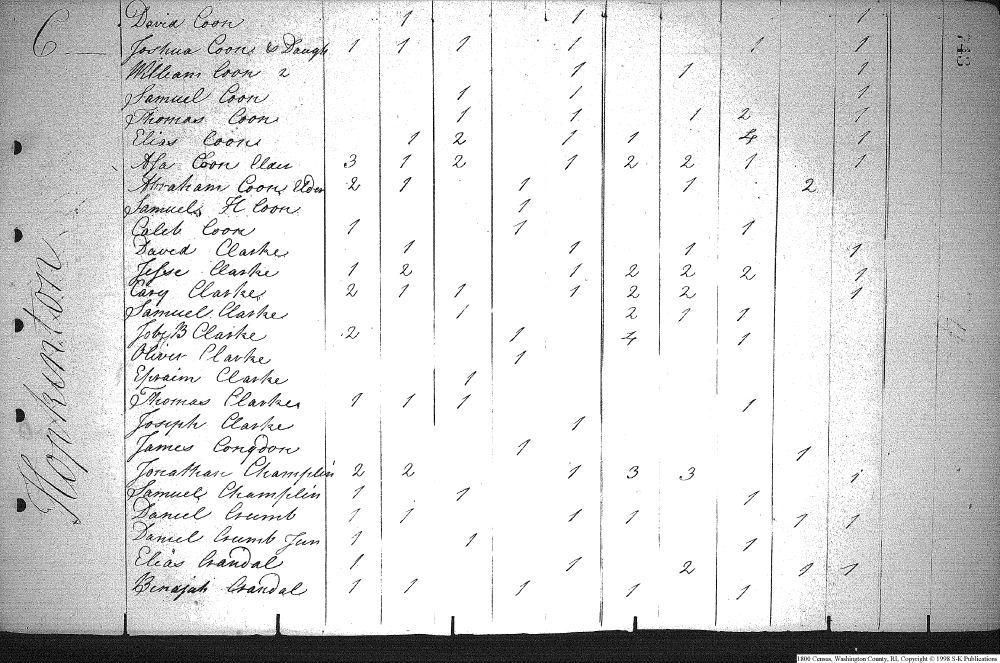 C
743
Hopkinton
David Coon 1 1 1
Joshua Coon & Daugh 1 1 1 1 1 1
William Coon 2 1 1 1
Samuel Coon 1 1 1
Thomas Coon 1 1 1 2 1
Elias Coon 1 2 1 1 4 1
Asa Coon 3 1 2 1 2 2 1 1
Abraham Coon Elder 2 1 1 1 2
Samuel H Coon 1
Caleb Coon 1 1 1
David Clarke 1 1 1 1
Jesse Clarke 1 2 1 2 2 2 1
Cary Clarke 2 1 1 1 2 2 1
Samuel Clarke 1 2 1 1
Joby B Clarke 2 1 4 1
Oliver Clarke 1
Epraim Clarke 1
Thomas Clarke 1 1 1 1
Joseph Clarke 1
James Congdon 1 1
Jonathan Champlin 2 2 1 3 3 1
Samuel Champlin 1 1 1
Daniel Crumb 1 1 1 1 1 1
Daniel Crumb Jun 1 1 1
Elias Crandal 1 1 2 1 1
Binajah Crandal 1 1 1 1 1
1800 Census, Washington County, RI, Copyright © 1998 S-K Publications